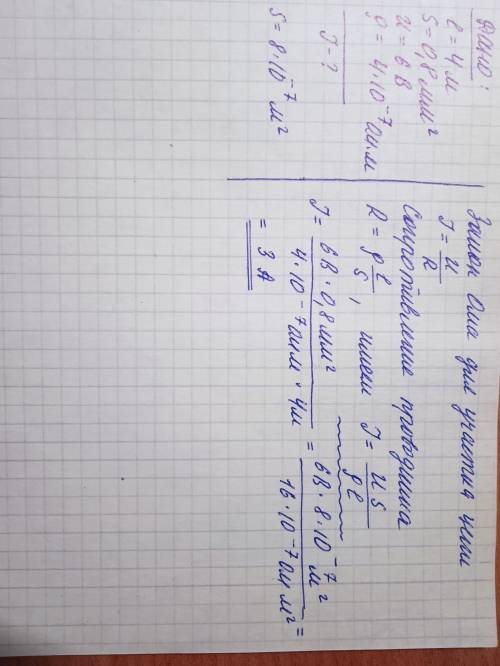 Дано:
l = 4 м
S = 0,8 мм²
U = 6 В
ρ = 4·10⁻⁷ Ом·м
I - ?
S = 8·10⁻⁷ м²
Закон Ома для участка цепи
I = U/R
Сопротивление проводника
R = ρ l/S, имеем I = US/ρl
I = 6В·0,8мм²/4·10⁻⁷Ом м·4м = 6В·8·10⁻⁷м²/16·10⁻⁷Ом м² =
= 3 А